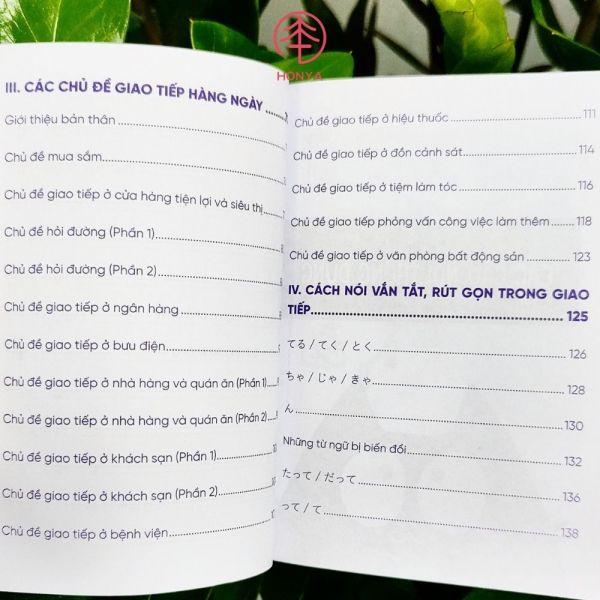 HONYA
III. CÁC CHỦ ĐỀ GIAO TIẾP HÀNG NGÀY
Giới thiệu bản thân
Chủ đề mua sắm
Chủ đề giao tiếp ở cửa hàng tiện lợi và siêu thị
Chủ đề hỏi đường (Phần 1)
Chủ đề hỏi đường (Phần 2)
Chủ đề giao tiếp ở ngân hàng
Chủ đề giao tiếp ở bưu điện
Chủ đề giao tiếp ở nhà hàng và quán ăn (Phần 1)
Chủ đề giao tiếp ở nhà hàng và quán ăn (Phần 2)
Chủ đề giao tiếp ở khách sạn (Phần 1)
Chủ đề giao tiếp ở khách sạn (Phần 2)
Chủ đề giao tiếp ở bệnh viện
Chủ đề giao tiếp ở hiệu thuốc 111
Chủ đề giao tiếp ở đồn cảnh sát 114
Chủ đề giao tiếp ở tiệm làm tóc 116
Chủ đề giao tiếp phỏng vấn công việc làm thêm 118
Chủ đề giao tiếp ở văn phòng bất động sản 123
IV. CÁCH NÓI VẮN TẮT, RÚT GỌN TRONG GIAO
TIẾP 125
てる / てく / とく 126
ちゃ / じゃ / きゃ 128
ん 130
Những từ ngữ bị biến đổi 132
たって / だって 136
って / て 138